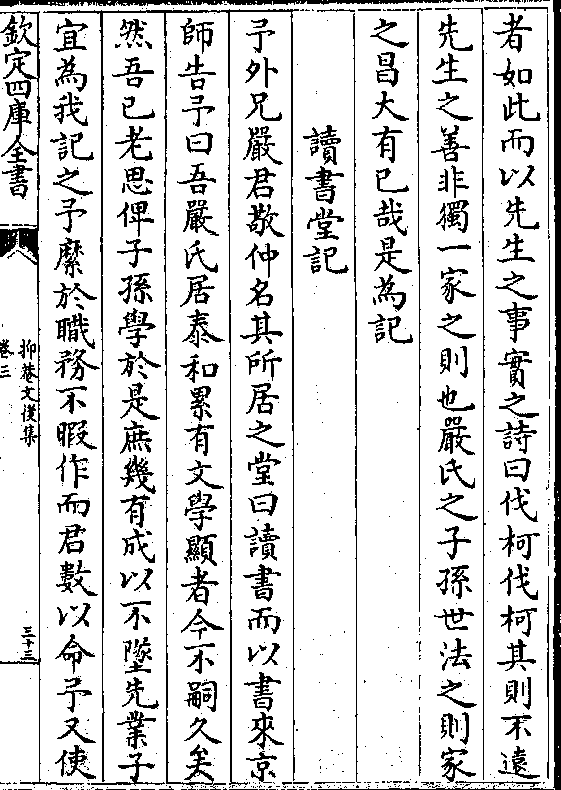 者如此而以先生之事實之詩曰伐柯伐柯其則不遠
先生之善非獨一家之則也嚴氏之子孫世法之則家
之昌大有已哉是為記
讀書堂記
予外兄嚴君敬仲名其所居之堂曰讀書而以書來京
師告予曰吾嚴氏居泰和累有文學顯者今不嗣久矣
然吾已老思俾子孫學於是庶幾有成以不墜先業子
宜為我記之予縻於職務不暇作而君數以命予又使
欽定四庫全書
抑菴文後集
卷三
三十三